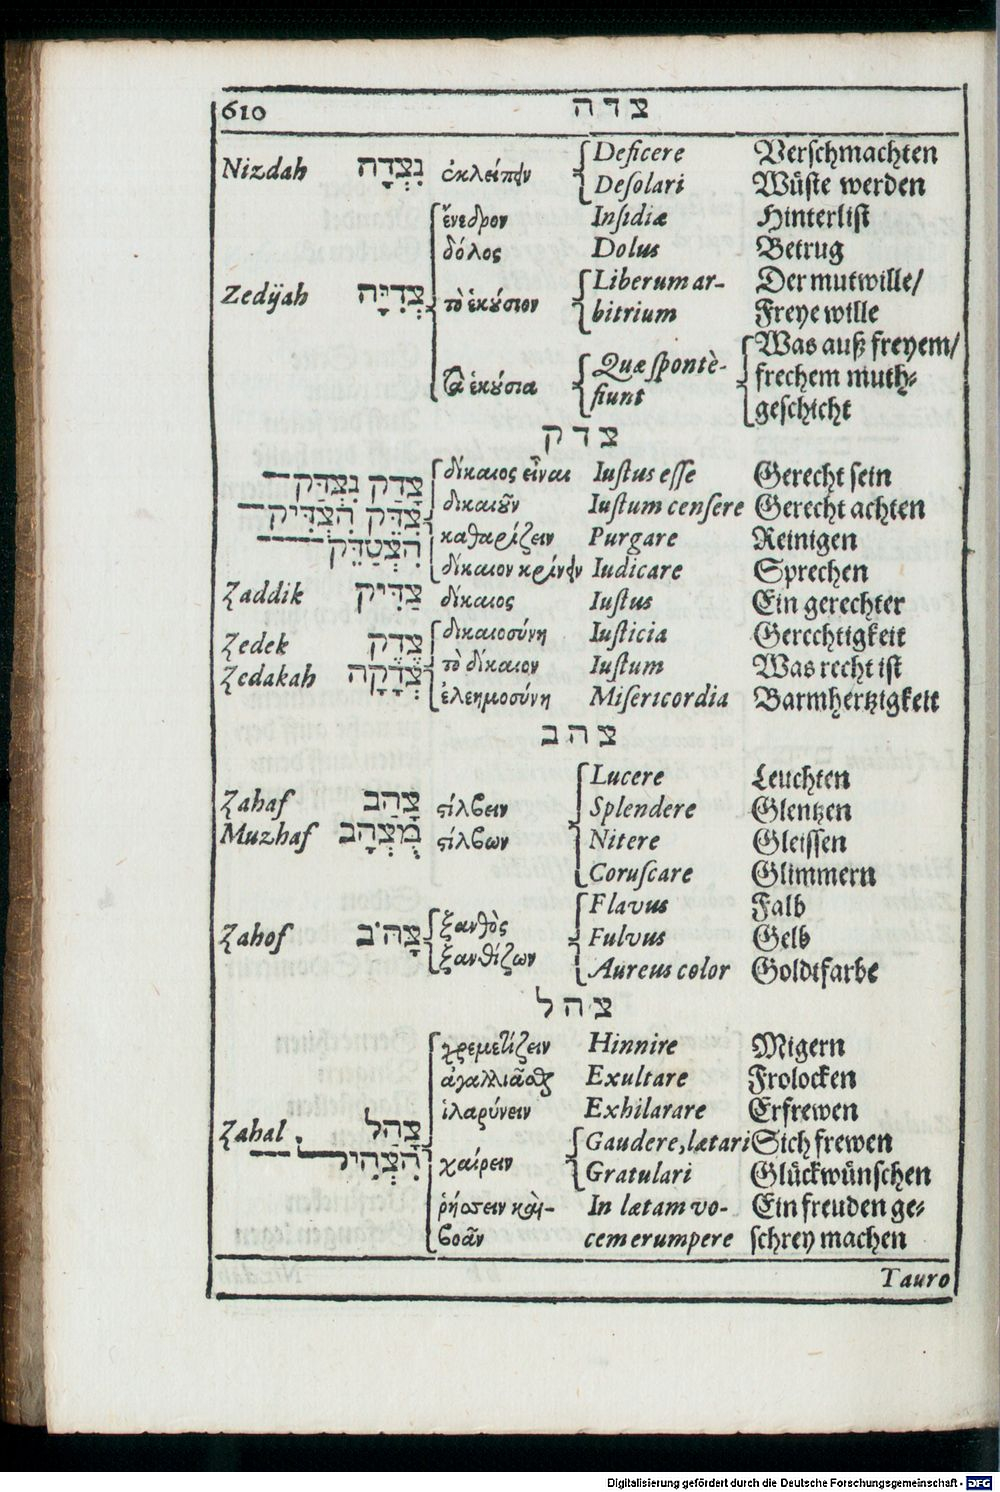 610 צדה
Nizdah נִצְדָה ἐκλείπειν Deficere Verschmachten
Desolari Wüste werden
ἔνεδρον Insidiæ Hinterlist
δόλος Dolus Betrug
Zedijah צְדִיָּה τὸ ἑκούσιον Liberum ar- Der mutwille/
bitrium Freye wille
τὰ ἑκούσια Quæ spontè- Was auß freyem/
fiunt frechem muth-
geschicht
צדק
צָדַק נִצְדַּק δίκαιος εἶναι Iustus esse Gerecht sein
צִדֵּק הִצְדִּיק δικαιοῦν Iustum censere Gerecht achten
הִצְטַדֵּק καθαρίζειν Purgare Reinigen
δίκαιον κρίνειν Iudicare Sprechen
Zaddik צַדִּיק δίκαιος Iustus Ein gerechter
Zedek צֶדֶק δικαιοσύνη Iusticia Gerechtigkeit
Zedakah צְדָקָה τὸ δίκαιον Iustum Was recht ist
ἐλεημοσύνη Misericordia Barmhertzigkeit
צהב
Lucere Leuchten
Zahaf צָהַב στίλβειν Splendere Glentzen
Muzhaf מֻצְהָב στίλβων Nitere Gleissen
Coruscare Glimmern
Flavus Falb
Zahof צָהֹב ξανθὸς Fulvus Gelb
ξανθίζων Aureus color Goldtfarbe
צהל
χρεμετίζειν Hinnire Migern
ἀγαλλιᾶσθαι Exultare Frolocken
ἱλαρύνειν Exhilarare Erfrewen
Zahal צָהַל χαίρειν Gaudere, lætari Sich frewen
הִצְהִיל Gratulari Glückwünschen
ῥήσσειν καὶ- In lætam vo- Ein freuden ge-
βοᾶν cem erumpere schrey machen
Tauro
Digitalisierung gefördert durch die Deutsche Forschungsgemeinschaft - DFG